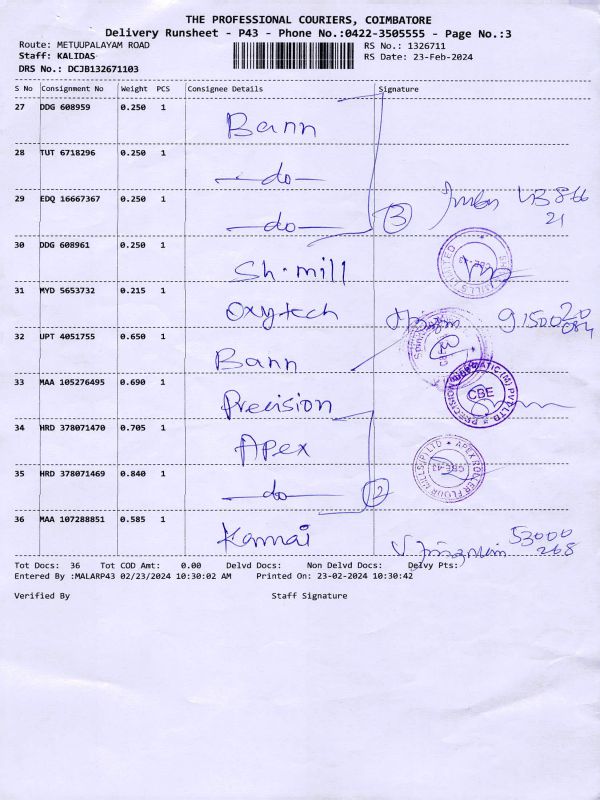 THE PROFESSIONAL COURIERS, COIMBATORE
Delivery Runsheet - P43 - Phone No.:0422-3505555 - Page No.:3
Route: METUUPALAYAM ROAD
RS No.: 1326711
Staff: KALIDAS
RS Date: 23-Feb-2024
DRS No.: DCJB132671103
S No Consignment No Weight PCS Consignee Details Signature
27 DDG 608959 0.250 1 Bann
28 TUT 6718296 0.250 1 —do—
29 EDQ 16667367 0.250 1 —do— 3
30 DDG 608961 0.250 1 Sh. mill
31 MYD 5653732 0.215 1 Oxytech
32 UPT 4051755 0.650 1 Bann
33 MAA 105276495 0.690 1 Precision
CBE
34 HRD 378071470 0.705 1 Apex
35 HRD 378071469 0.840 1 —do— 2
36 MAA 107288851 0.585 1 Kannai
53000
268
Tot Docs: 36 Tot COD Amt: 0.00 Delvd Docs: Non Delvd Docs: Delvy Pts:
Entered By :MALARP43 02/23/2024 10:30:02 AM Printed On: 23-02-2024 10:30:42
Verified By Staff Signature